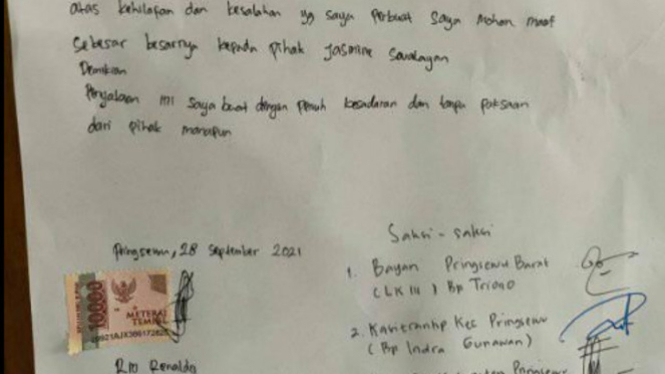 atas kehilafan dan kesalahan yg saya perbuat saya Mohon maaf
Sebesar besarnya kepada pihak Jasmine Swalayan
Demikian
Penyataan ini saya buat dengan penuh kesadaran dan tanpa paksaan
dari pihak manapun
Saksi - saksi
Pringsewu, 28 September 2021
1. Bayan Pringsewu Barat
(LK III) Bp Triono
10000
METERAI
TEMPEL
2. Kec Pringsewu
(Bp Indra Gunawan)
Rio Renaldo
Pringsewu